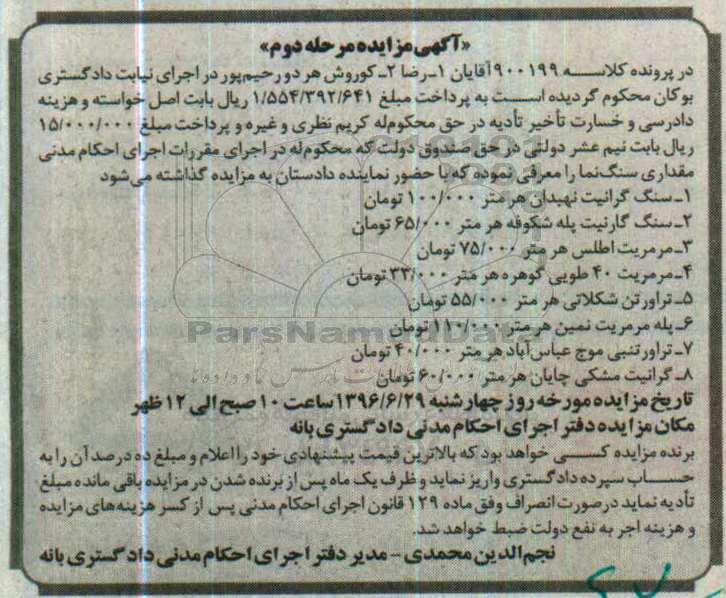 «آگهی مزایده مرحله دوم»
در پرونده کلاسه ۹۰۰۱۹۹ آقایان ۱ـ رضا ۲ـ کوروش هر دو رحیم‌پور در اجرای نیابت دادگستری
بوکان محکوم گردیده است به پرداخت مبلغ ۱/۵۵۴/۳۹۲/۶۴۱ ریال بابت اصل خواسته و هزینه
دادرسی و خسارت تأخیر تأدیه در حق محکوم‌له کریم نظری و غیره و پرداخت مبلغ ۱۵/۰۰۰/۰۰۰
ریال بابت نیم عشر دولتی در حق صندوق دولت که محکوم‌له در اجرای مقررات اجرای احکام مدنی
مقداری سنگ‌نما را معرفی نموده که با حضور نماینده دادستان به مزایده گذاشته می‌شود
۱ـ سنگ گرانیت نهبدان هر متر ۱۰۰/۰۰۰ تومان
۲ـ سنگ گارنیت پله شکوفه هر متر ۶۵/۰۰۰ تومان
۳ـ مرمریت اطلس هر متر ۷۵/۰۰۰ تومان
۴ـ مرمریت ۴۰ طوبی گوهره هر متر ۳۳/۰۰۰ تومان
۵ـ تراورتن شکلاتی هر متر ۵۵/۰۰۰ تومان
۶ـ پله مرمریت نمین هر متر ۱۱۰/۰۰۰ تومان
۷ـ تراورتنبی موج عباس‌آباد هر متر ۴۰/۰۰۰ تومان
۸ـ گرانیت مشکی چایان هر متر ۶۰/۰۰۰ تومان
تاریخ مزایده مورخه روز چهارشنبه ۱۳۹۶/۶/۲۹ ساعت ۱۰ صبح الی ۱۲ ظهر
مکان مزایده دفتر اجرای احکام مدنی دادگستری بانه
برنده مزایده کسی خواهد بود که بالاترین قیمت پیشنهادی خود را اعلام و مبلغ ده درصد آن را به
حساب سپرده دادگستری واریز نماید و ظرف یک ماه پس از برنده شدن در مزایده باقی مانده مبلغ
تأدیه نماید درصورت انصراف وفق ماده ۱۲۹ قانون اجرای احکام مدنی پس از کسر هزینه‌های مزایده
و هزینه اجر به نفع دولت ضبط خواهد شد.
نجم‌الدین محمدی – مدیر دفتر اجرای احکام مدنی دادگستری بانه
ParsNamadData